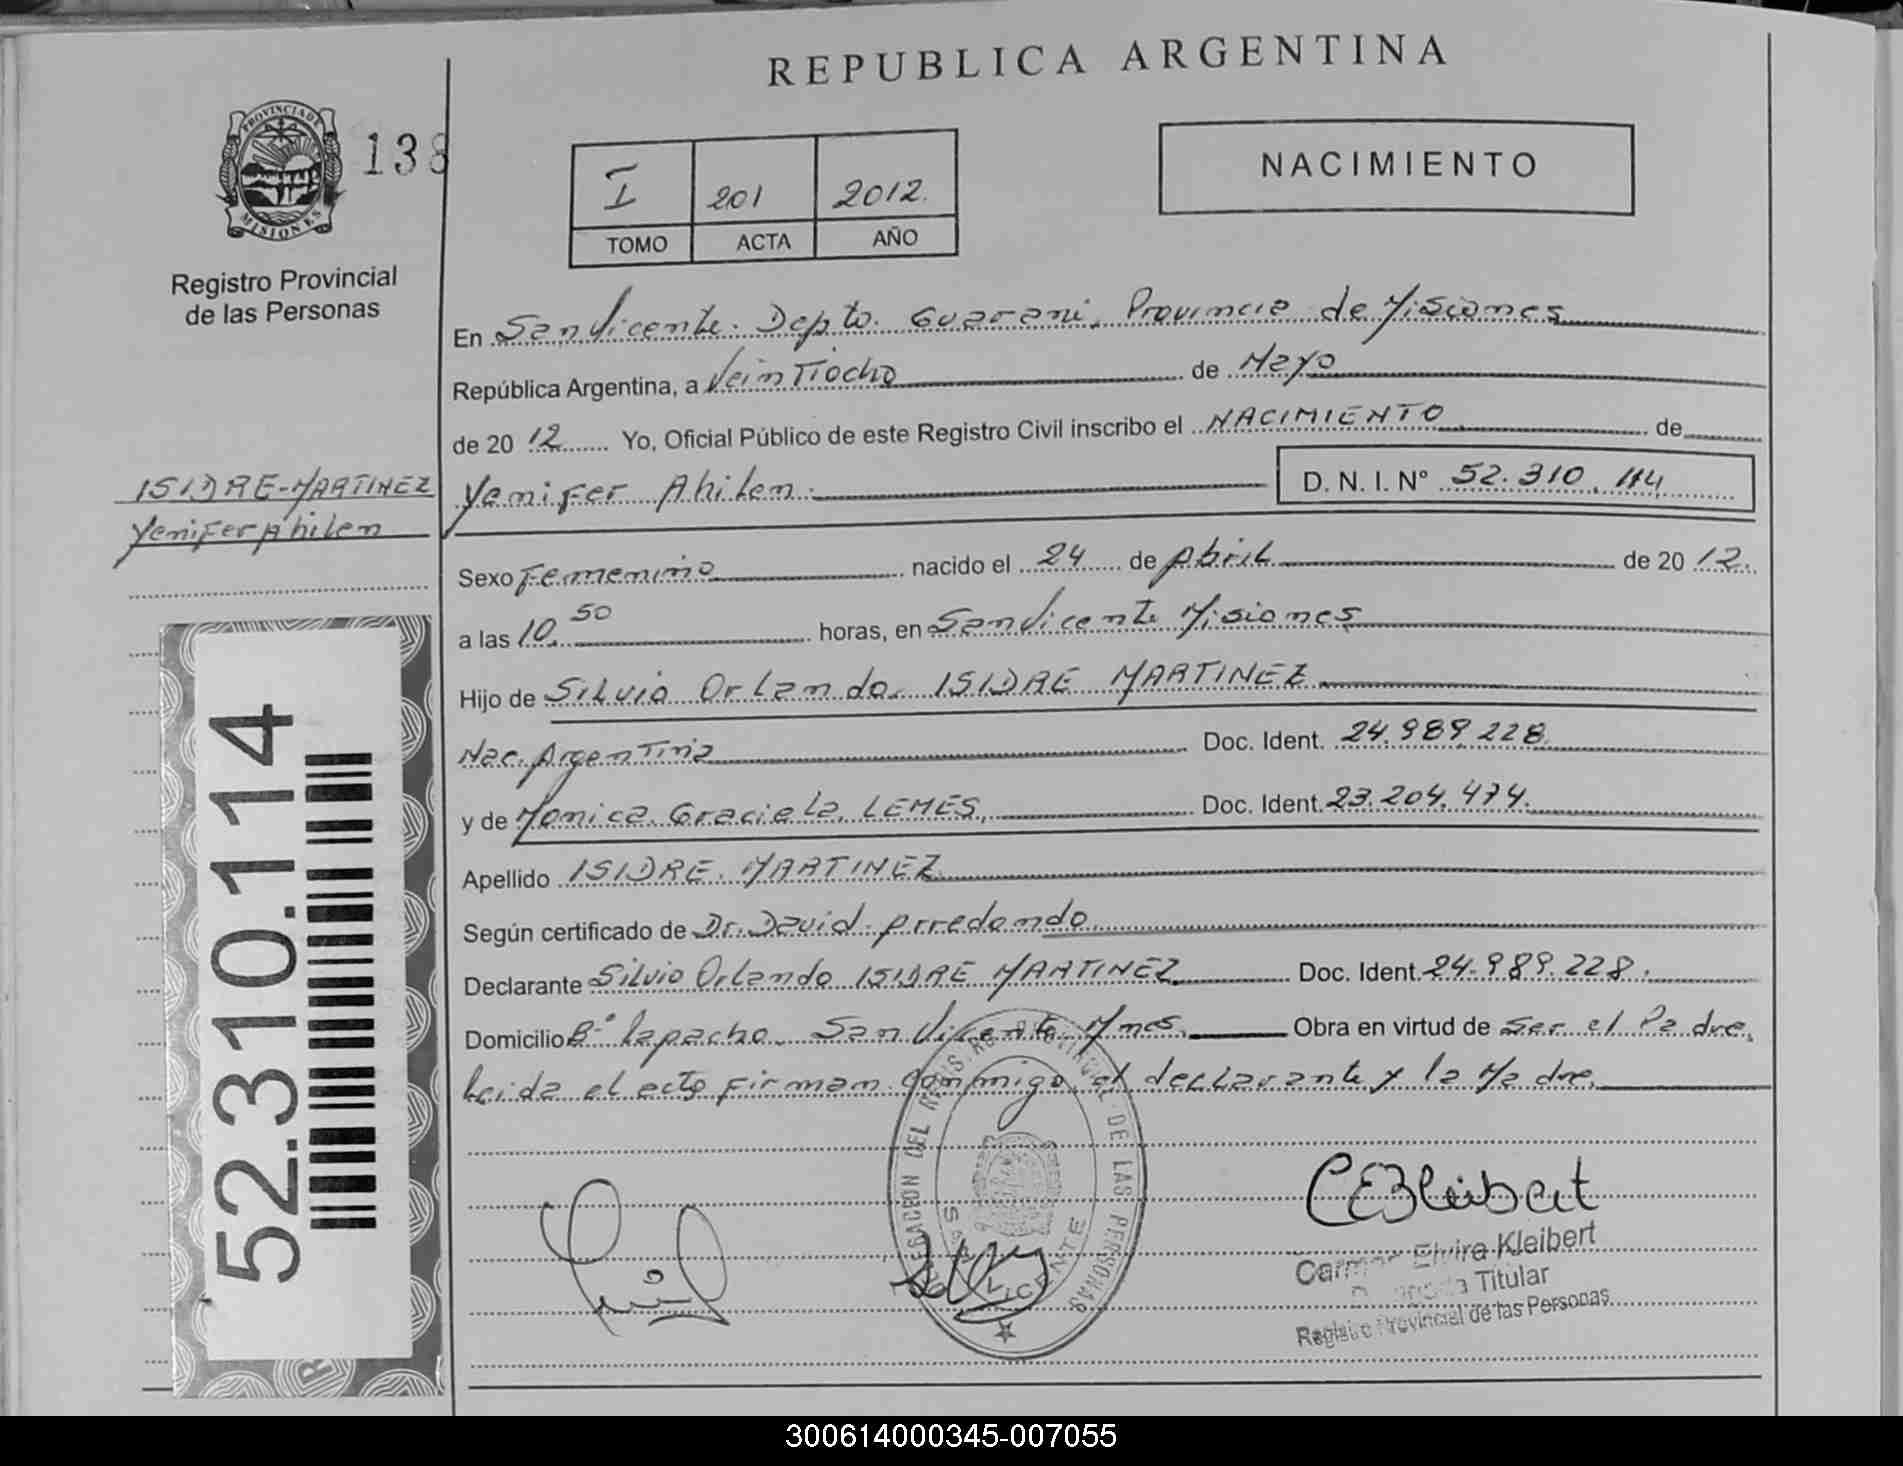 REPUBLICA ARGENTINA
PROVINCIA DE
MISIONES
138
Registro Provincial
de las Personas
I 201 2012.
TOMO ACTA AÑO
NACIMIENTO
En San Vicente. Depto. Guarani, Provincia de Misiones
República Argentina, a Veintiocho de Mayo
de 20 12 Yo, Oficial Público de este Registro Civil inscribo el NACIMIENTO de
Yenifer Ahilen. D. N. I. N° 52.310.114
ISIDRE-MARTINEZ
Yenifer Ahilen
Sexo Femenino nacido el 24 de Abril de 20 12.
a las 10.50 horas, en San Vicente Misiones
Hijo de Silvio Orlando. ISIDRE MARTINEZ
Nac. Argentina Doc. Ident. 24.989.228.
y de Monica Graciela LEMES, Doc. Ident. 23.204.474.
Apellido ISIDRE MARTINEZ
Según certificado de Dr. David Arredondo
Declarante Silvio Orlando ISIDRE MARTINEZ Doc. Ident. 24.989.228.
Domicilio Bº Lapacho. San Vicente Mnes. Obra en virtud de ser el Padre,
Leida el acta firman conmigo el declarante y la Madre.
52.310.114
DELEGACION DEL REGISTRO PROVINCIAL DE LAS PERSONAS
SAN VICENTE
CEKleibert
Carmen Elvira Kleibert
Delegada Titular
Registro Provincial de las Personas
300614000345-007055